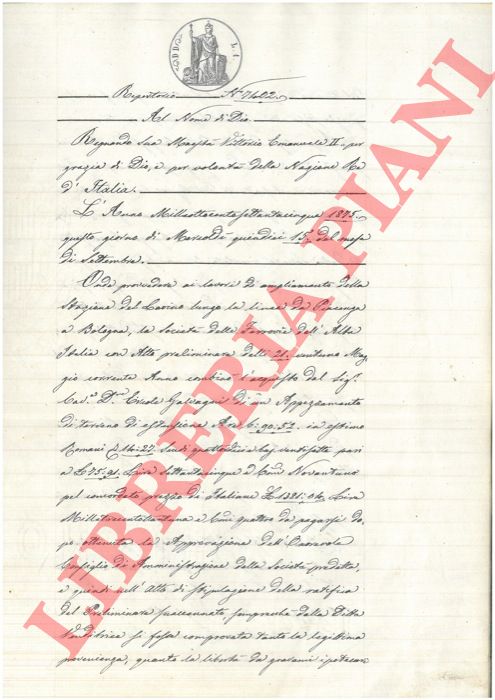 Repertorio N.° 7402.
Al Nome di Dio.
Regnando Sua Maestà Vittorio Emanuele II. per
grazia di Dio, e per volontà della Nazione Re
d'Italia.
L'Anno Milleottocentosettantacinque 1875.
questo giorno di Mercoldì quindici 15. del mese
di Settembre.
Onde provvedere ai lavori di ampliamento della
Stazione del Lavino lungo la linea da Piacenza
a Bologna, la Società delle Ferrovie dell'Alta
Italia con Atto preliminare delli 21. ventuno Mag-
gio corrente Anno combinò l'acquisto dal Sig.r
Cav.e D.r Ercole Galvagni di un Appezzamento
di terreno di estensione Are 6:90:52. in estimo
Romani 14:27. Scudi quattordici e baj. ventisette pari
a £ 75.91. Lire settantacinque e Cmi Novantuno
pel concordato prezzo di Italiane £ 1381:04. Lire
Milletrecentottantuna e Cmi quattro da pagarsi do-
po ottenuta la Approvazione dell'Onorevole
Consiglio di Amministrazione della Società predetta,
e quindi nell'Atto di stipulazione della ratifica
del Preliminare suaccennato semprechè dalla Ditta
Venditrice si fosse comprovata tanto la legittima
provenienza, quanto la libertà da gravami ipotecari
LIBRERIA PIANI